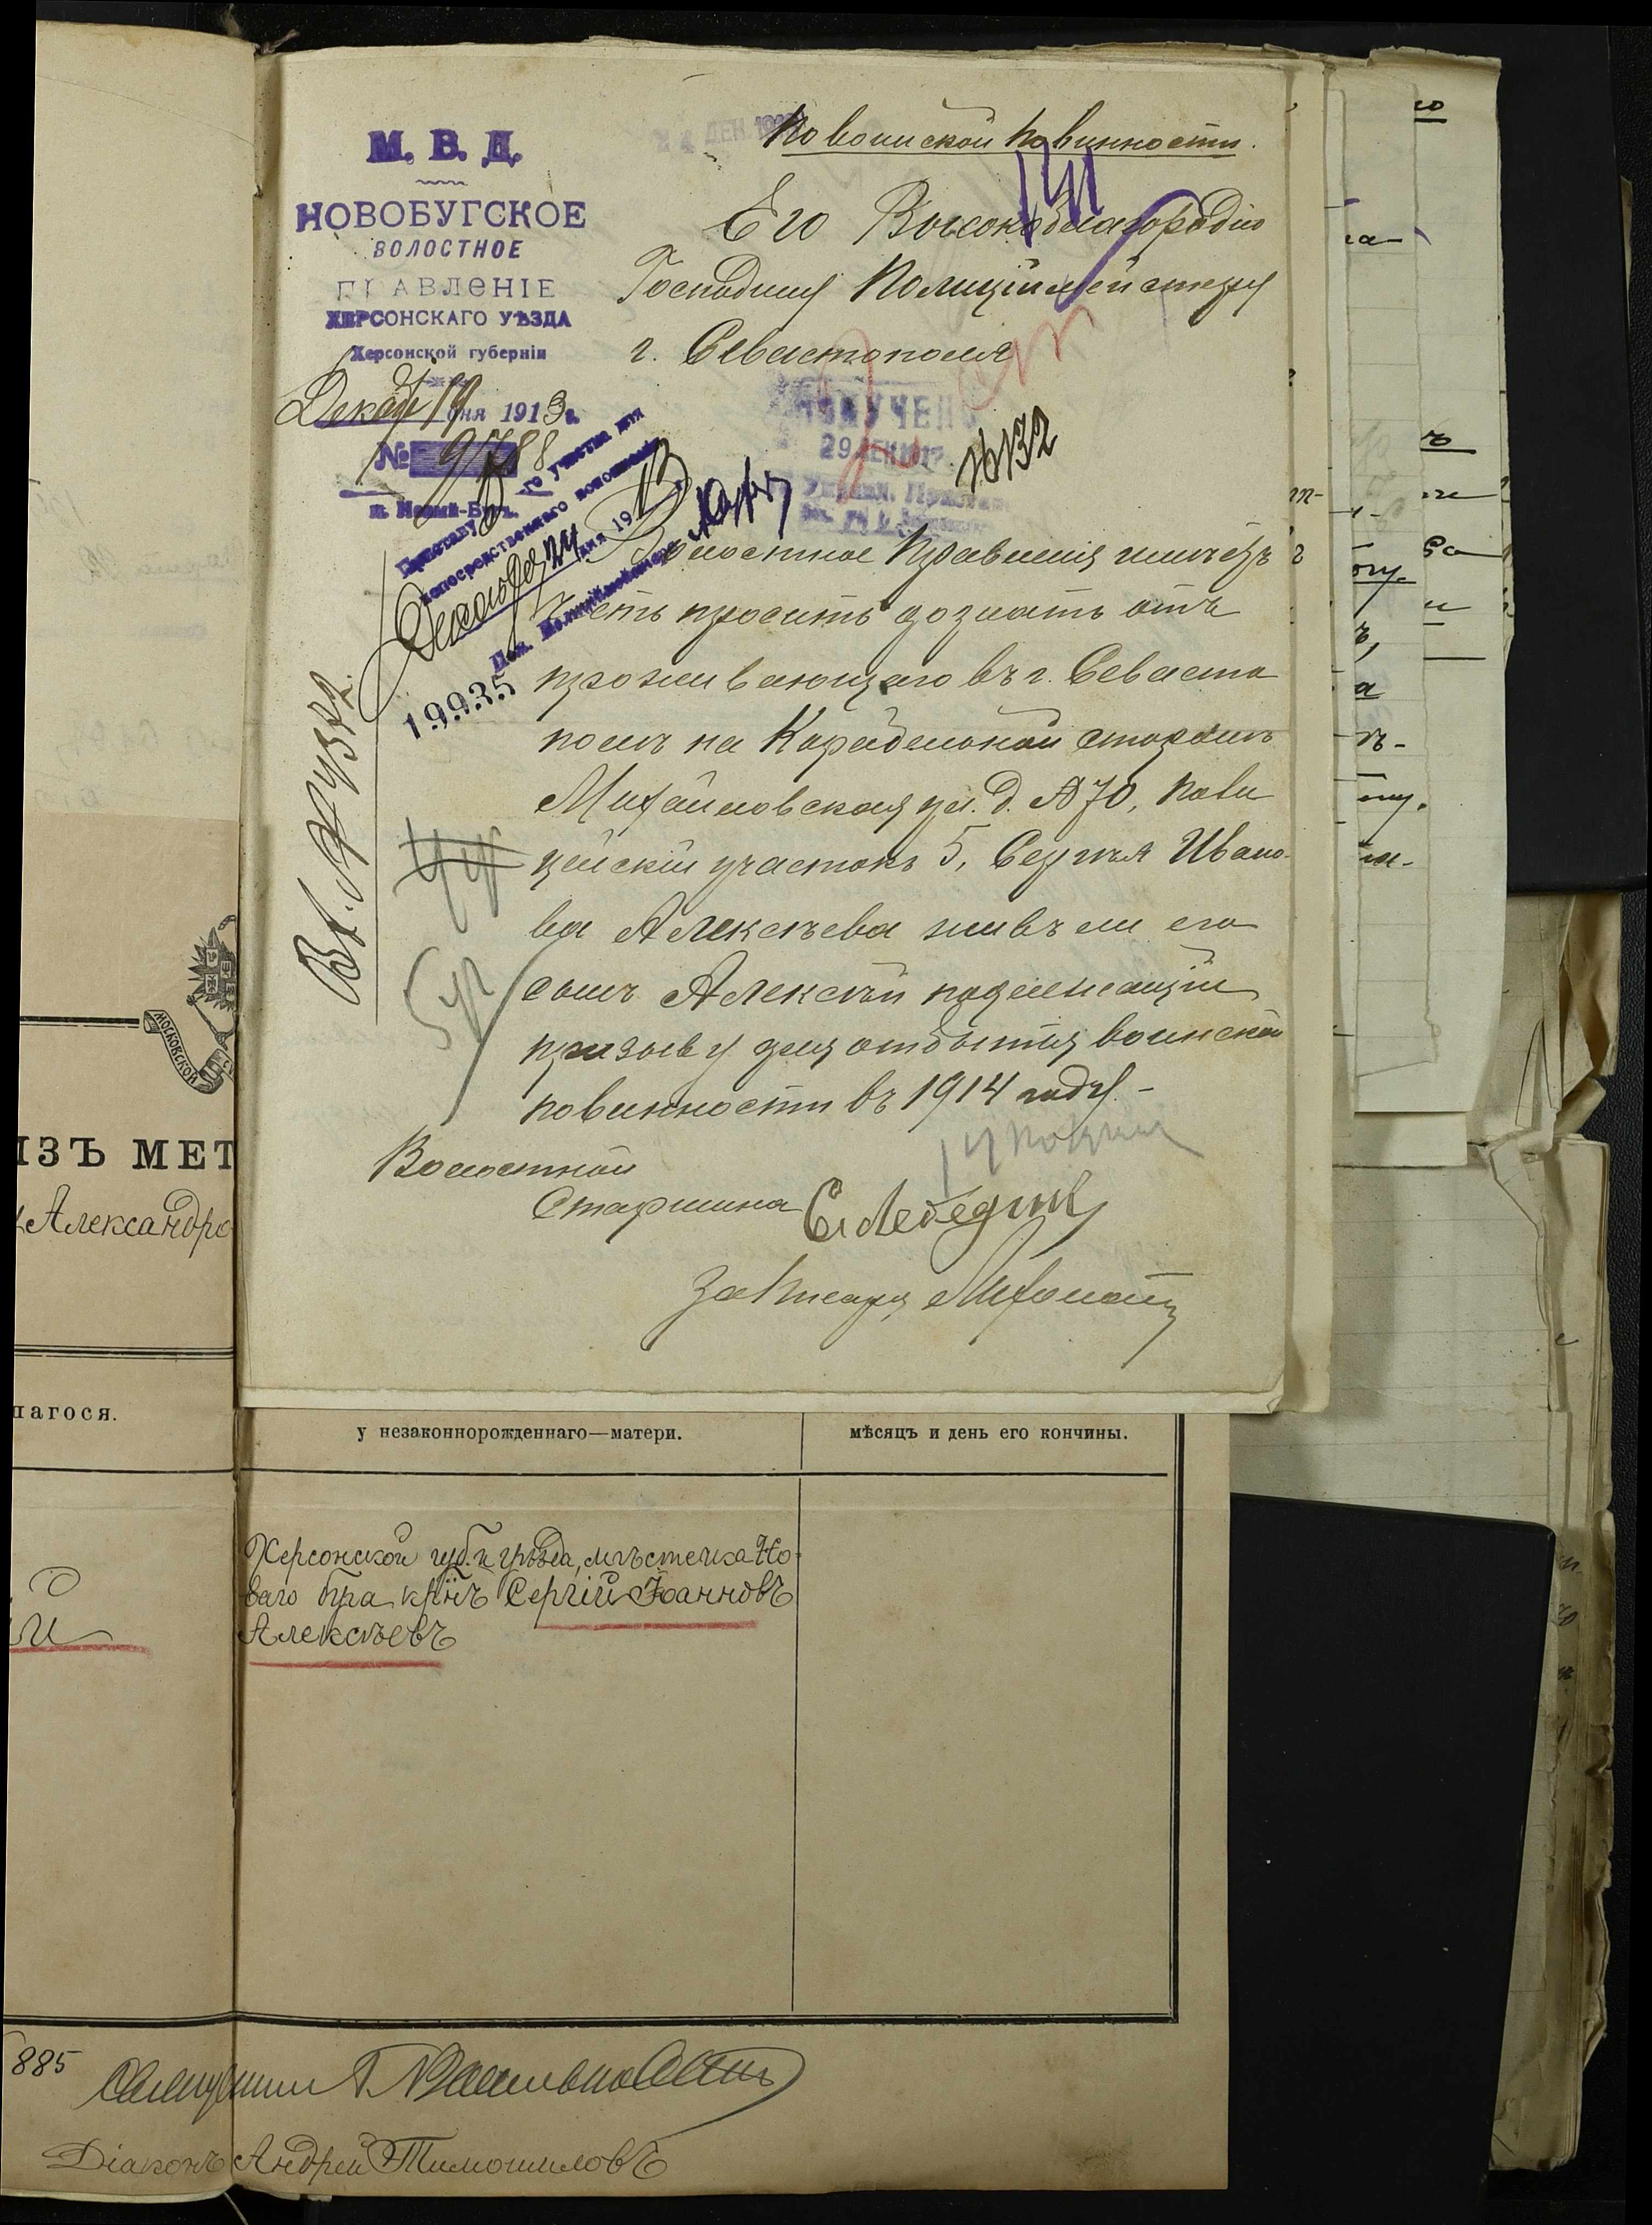 По воинской повинности.
М. В. Д.
НОВОБУГСКОЕ
ВОЛОСТНОЕ
ПРАВЛЕНІЕ
ХЕРСОНСКАГО УѢЗДА
Херсонской губерніи
Декаб 19 дня 1913 г.
№ 9788
м. Новый-Бугъ.
Его Высокоблагородію
Господину Полиціймейстеру
г. Севастополя
ПОЛУЧЕНО
29 ДЕК
16132
Приставу го участка для
непосредственнаго исполненія
Декабря 24 дня 1913
Полиціймейстеръ
19935
Волостное Правленіе имѣетъ
честь просить дознать отъ
проживающаго въ г. Севасто
полѣ на Корабельной сторонѣ
Михайловская ул. д. № 70, поли
цейскій участокъ 5, Сергѣя Ивано-
ва Алексѣева живъ ли его
сынъ Алексѣй подлежащій
призыву для отбытія воинской
повинности въ 1914 году.-
Волостной
Старшина С. Лебедин
За Писаря
5 уч
МОСКОВСКОЙ
ИЗЪ МЕТ
Александро
шагося.
у незаконнорожденнаго—матери.
мѣсяцъ и день его кончины.
Херсонской губ. и уѣзда, мѣстечка Но-
ваго Буга кр͠нъ Сергій Іоанновъ
Алексѣевъ
885
Діаконъ Андрей Тимошиловъ